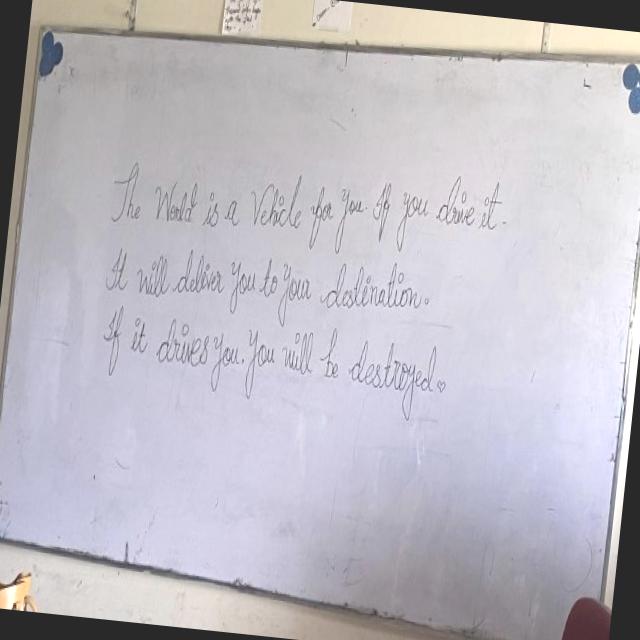 The World is a Vehicle for you If you drive it.
It will deliver you to your destination.
If it drives you. You will be destroyed.